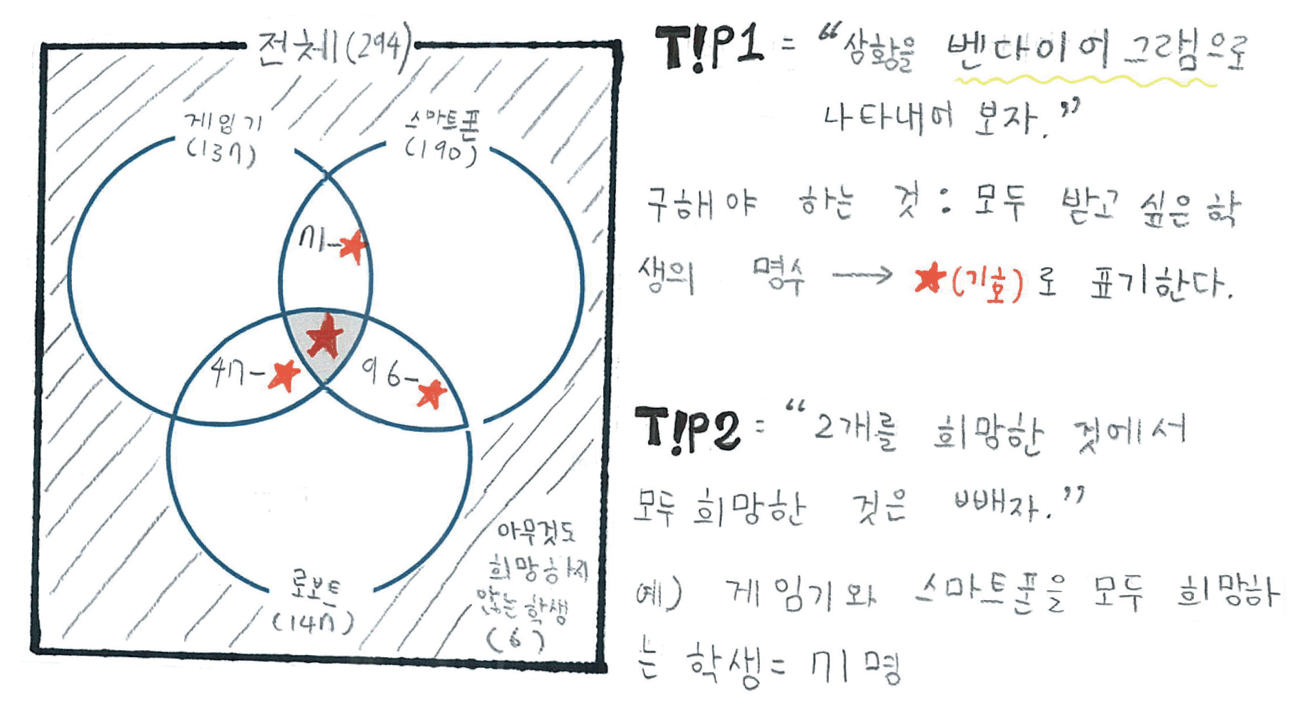 전체(294)
게임기
(137)
스마트폰
(190)
71-★
★
47-★
96-★
로보트
(147)
아무것도
희망하지
않는 학생
(6)
T!P1 = “상황을 벤다이어그램으로
나타내어 보자.”
구해야 하는 것 : 모두 받고 싶은 학
생의 명수 → ★(기호)로 표기한다.
T!P2 = “2개를 희망한 것에서
모두 희망한 것은 빼자.”
예) 게임기와 스마트폰을 모두 희망하
는 학생= 71명